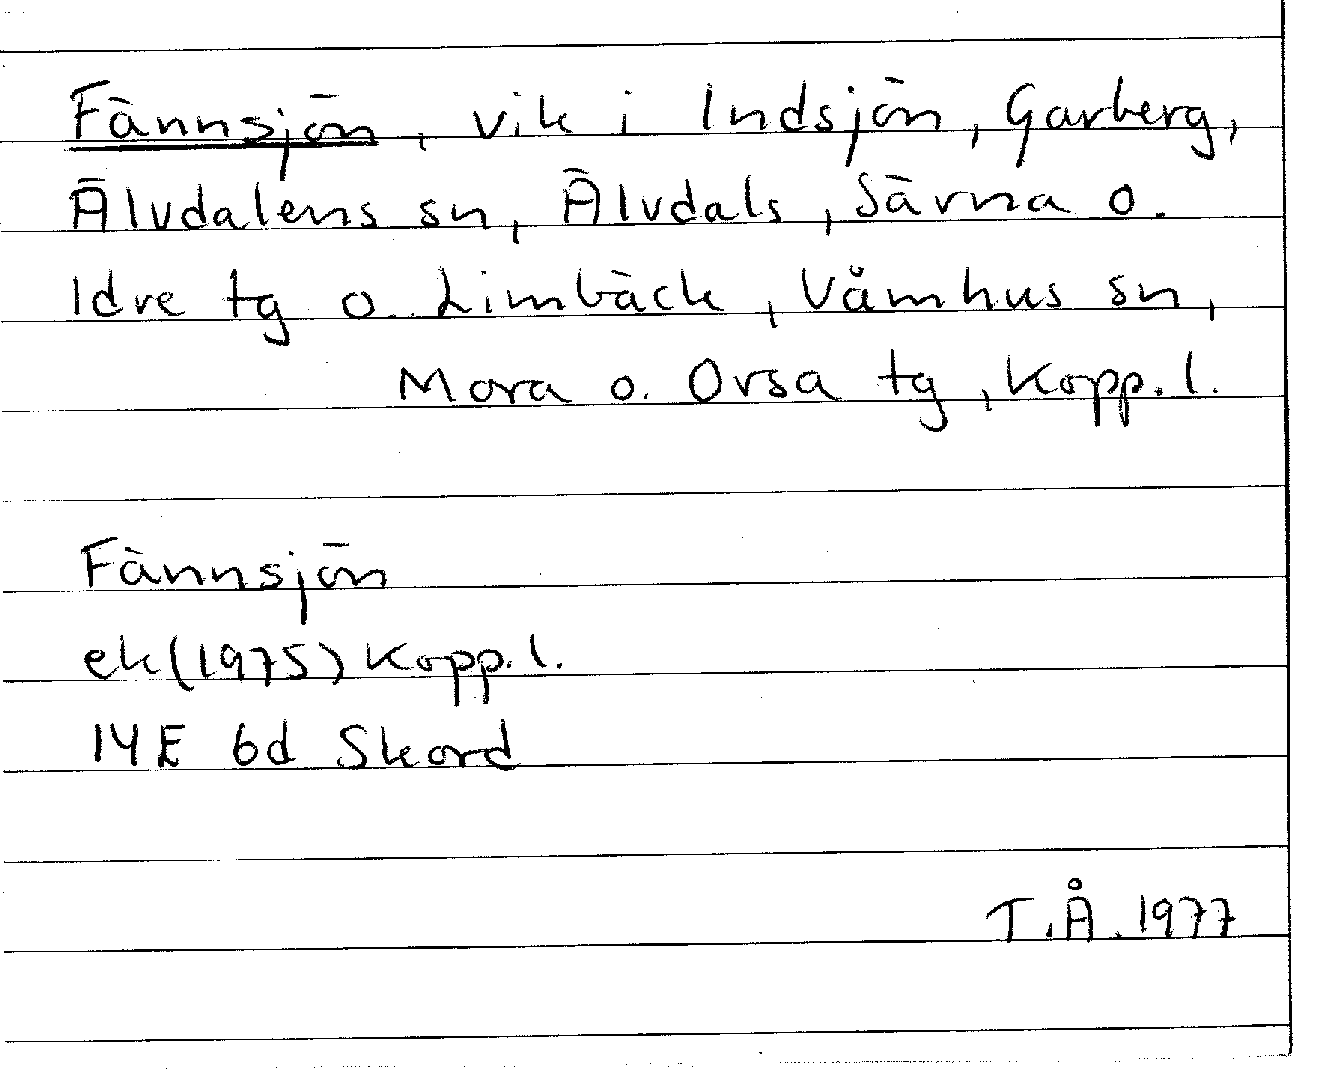 Fännsjön, vik i Indsjön, Garberg,
Älvdalens sn, Älvdals, Särna o.
Idre tg o. Limbäck, Våmhus sn,
Mora o. Orsa tg, Kopp. l.
Fännsjön
ek(1975) Kopp. l.
14E 6d Skord
T.Å. 1977